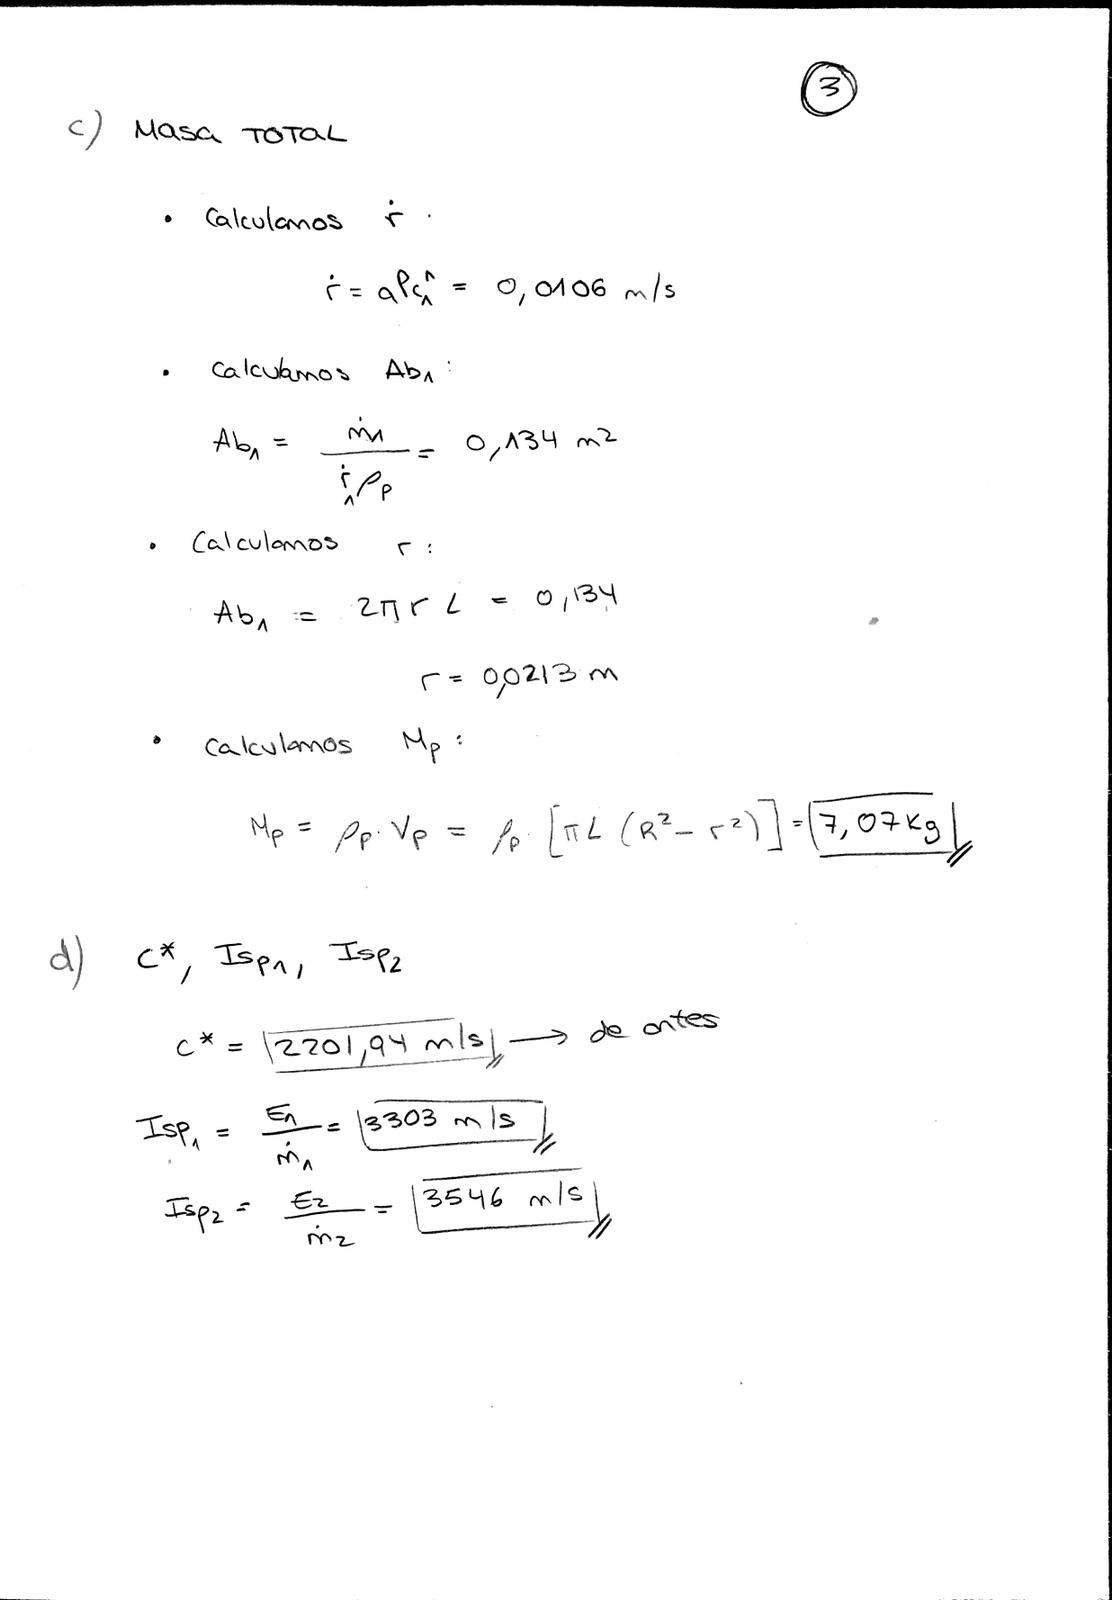 3
c) Masa TOTAL
• Calculamos ṙ .
ṙ = aPc₁ⁿ = 0,0106 m/s
• Calculamos Ab₁ :
Ab₁ = ṁ₁ / ṙ₁ρp = 0,134 m2
• Calculamos r :
Ab₁ = 2πr L = 0,134
r = 0,0213 m
• Calculamos Mp :
Mp = ρp · Vp = ρp · [πL (R² - r²)] = 7,07 Kg
d) C*, Isp₁, Isp₂
C* = 2201,94 m/s → de antes
Isp₁ = E₁ / ṁ₁ = 3303 m/s
Isp₂ = E₂ / ṁ₂ = 3546 m/s